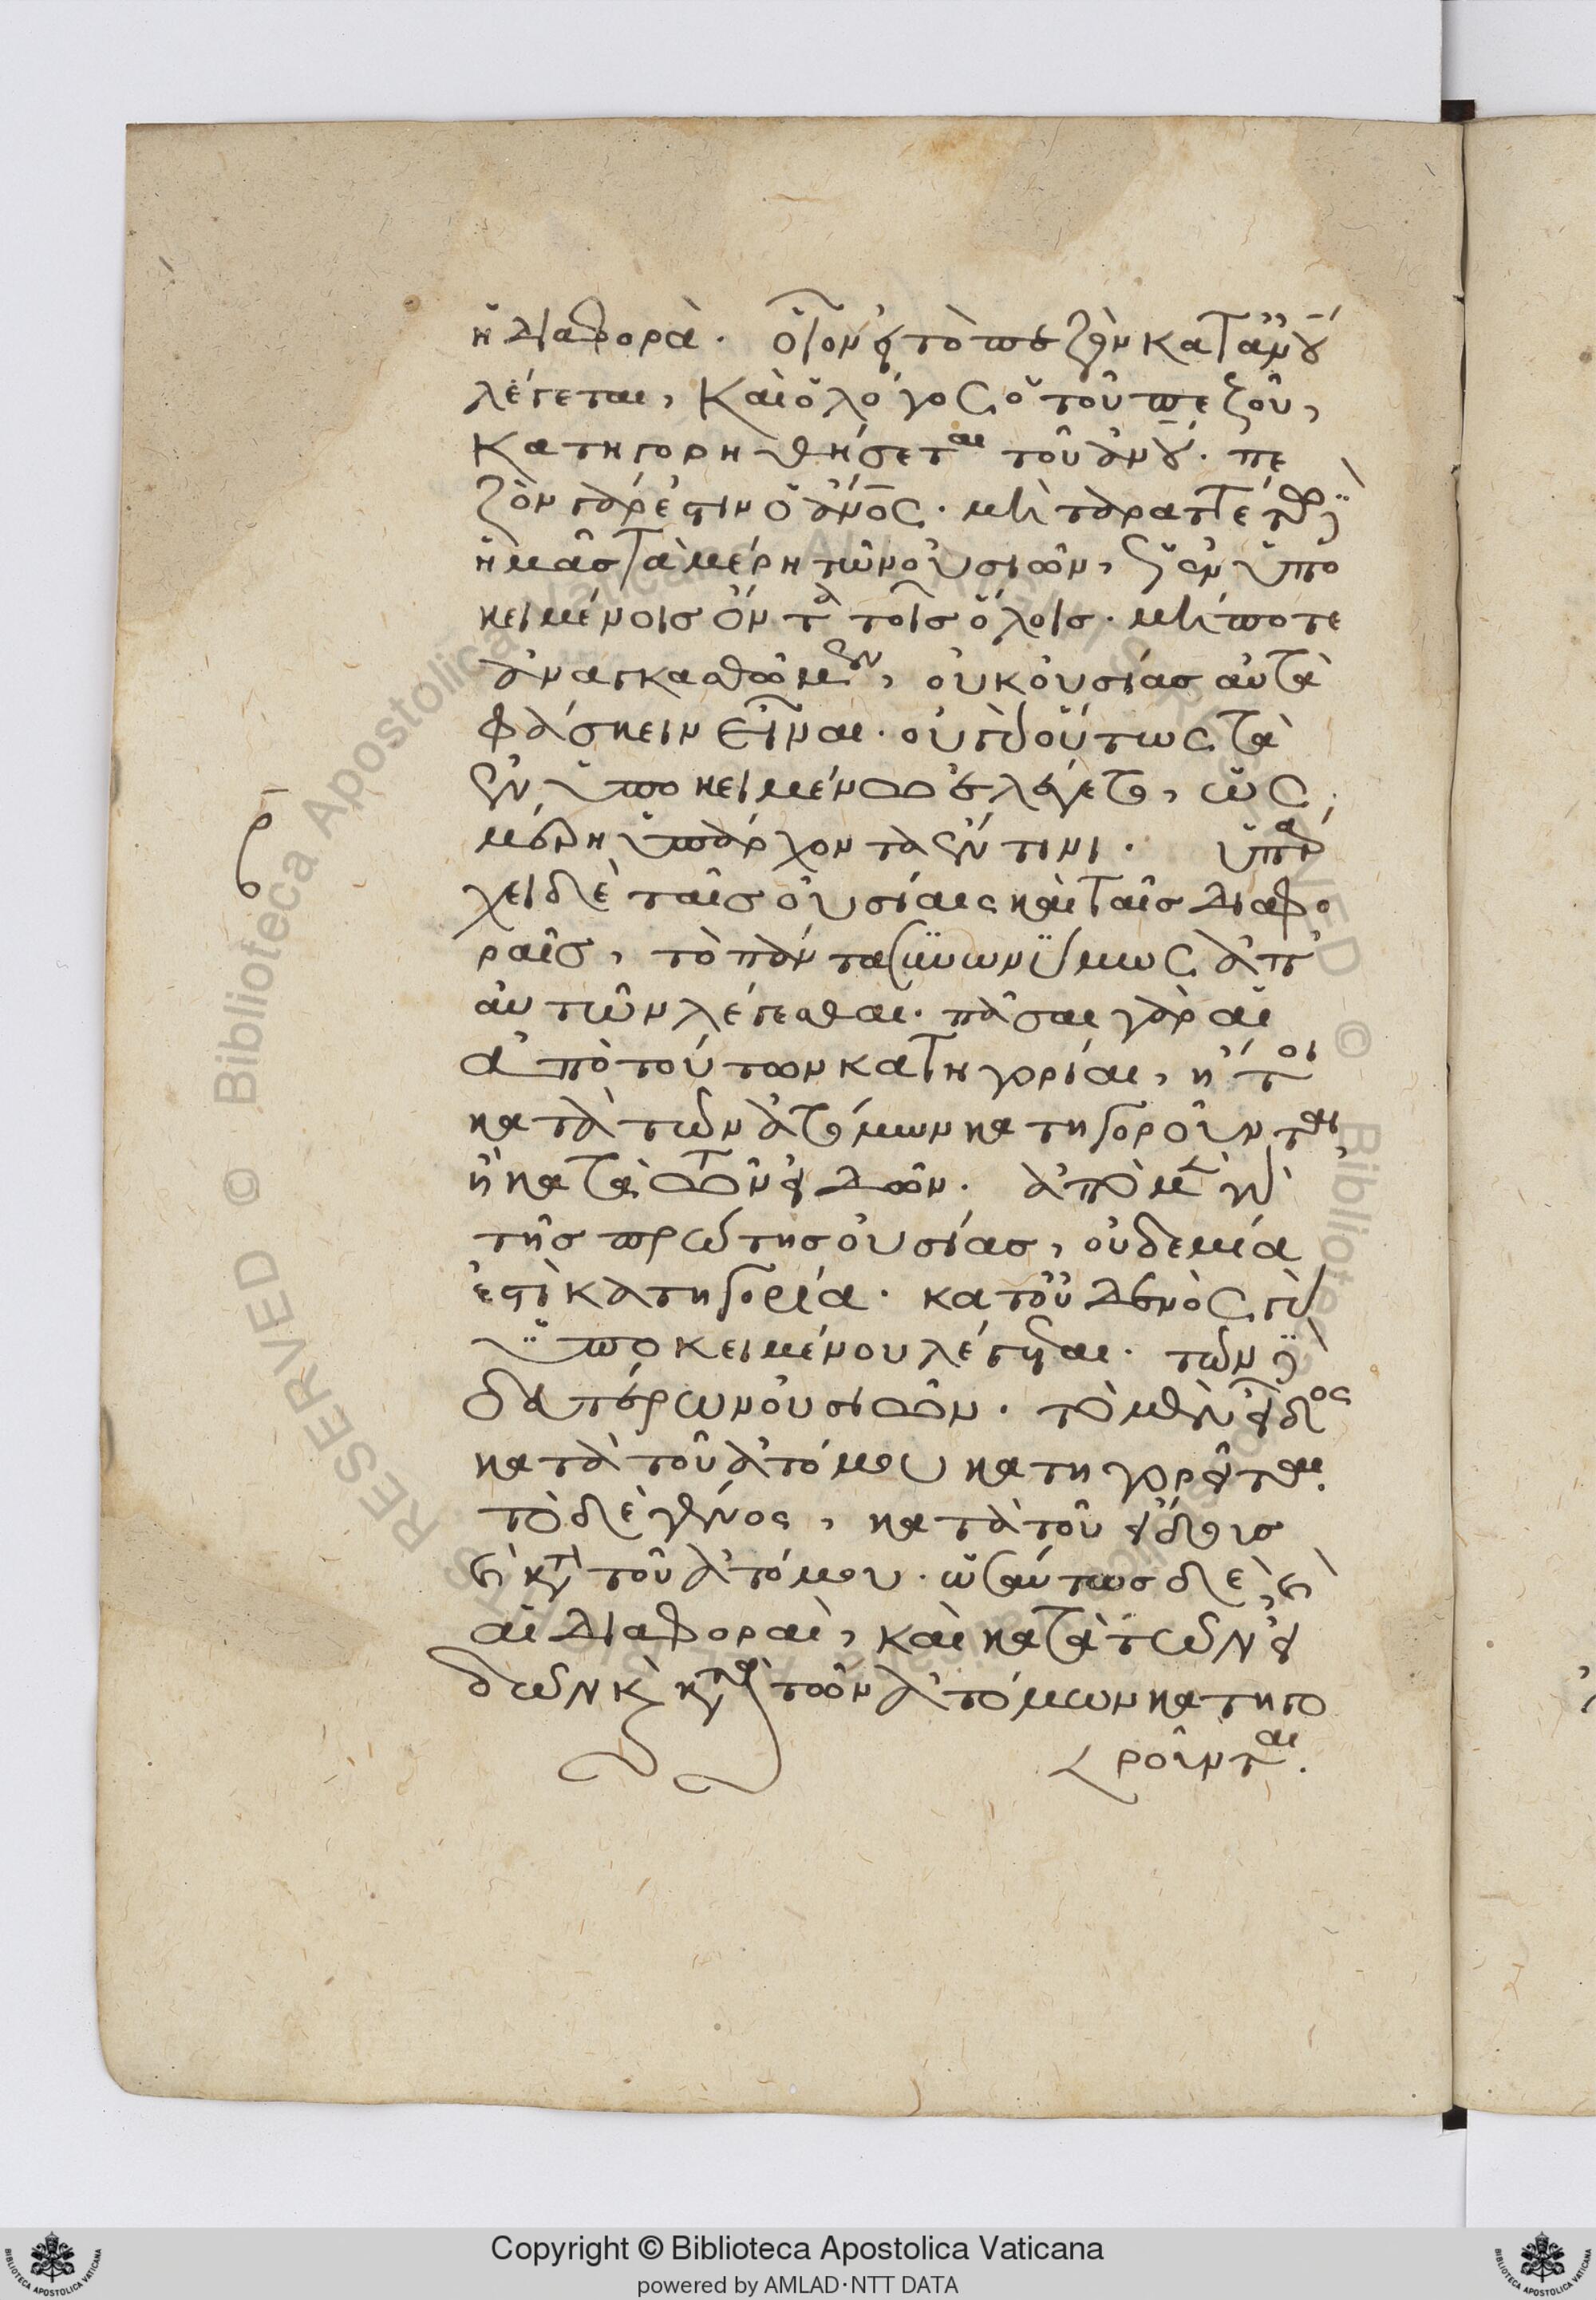 ἡ διαφορὰ. οἷον εἰ τὸ πεζὸν κατὰ ἀνου
λέγεται, καὶ ὁ λόγος ὁ τοῦ πεζοῦ,
κατηγορηθήσεται τοῦ ἀνου. πε
ζὸν γάρ ἐστιν ὁ ἀνος. μὴ ταραττέτω δὲ
ἡμᾶς τὰ μέρη τῶν οὐσιῶν, ὡς ἐν ὑπο
κειμένοις ὄντα τοῖς ὅλοις. μή ποτε
ἀναγκασθῶμεν, οὐκ οὐσίας αὐτὰ
φάσκειν εἶναι. οὐ γὰρ οὕτως τὰ
ἐν ὑποκειμένω ἐλέγετο, ὡς
μέρη ὑπάρχοντα ἔν τινι. ὑπάρ
χει δὲ ταῖς οὐσίαις καὶ ταῖς διαφο
ραῖς, τὸ πάντα συνωνύμως ἀπ'
αὐτῶν λέγεσθαι. πᾶσαι γὰρ αἱ
ἀπὸ τούτων κατηγορίαι, ἤτοι
κατὰ τῶν ἀτόμων κατηγοροῦνται,
ἢ κατὰ τῶν εἰδῶν. ἀπὸ μὲν γὰρ
τῆς πρώτης οὐσίας, οὐδεμία
ἐστὶ κατηγορία. κατ' οὐδενὸς γὰρ
ὑποκειμένου λέγεται. τῶν δὲ
δευτέρων οὐσιῶν. τὸ μὲν εἶδος
κατὰ τοῦ ἀτόμου κατηγορεῖται.
τὸ δὲ γένος, κατὰ τοῦ εἴδους
καὶ κατὰ τοῦ ἀτόμου. ὡσαύτως δὲ καὶ
αἱ διαφοραὶ, καὶ κατὰ τῶν εἰ
δῶν καὶ κατὰ τῶν ἀτόμων κατηγο
ροῦνται.
Copyright © Biblioteca Apostolica Vaticana
powered by AMLAD·NTT DATA